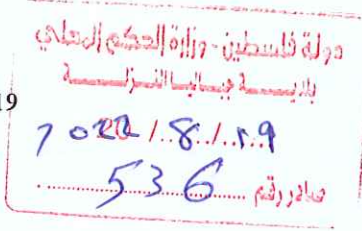 دولة فلسطين - وزارة الحكم المحلي
بلديـــة جباليا النـزلـــة
19
2022/8/29
صادر رقم 536